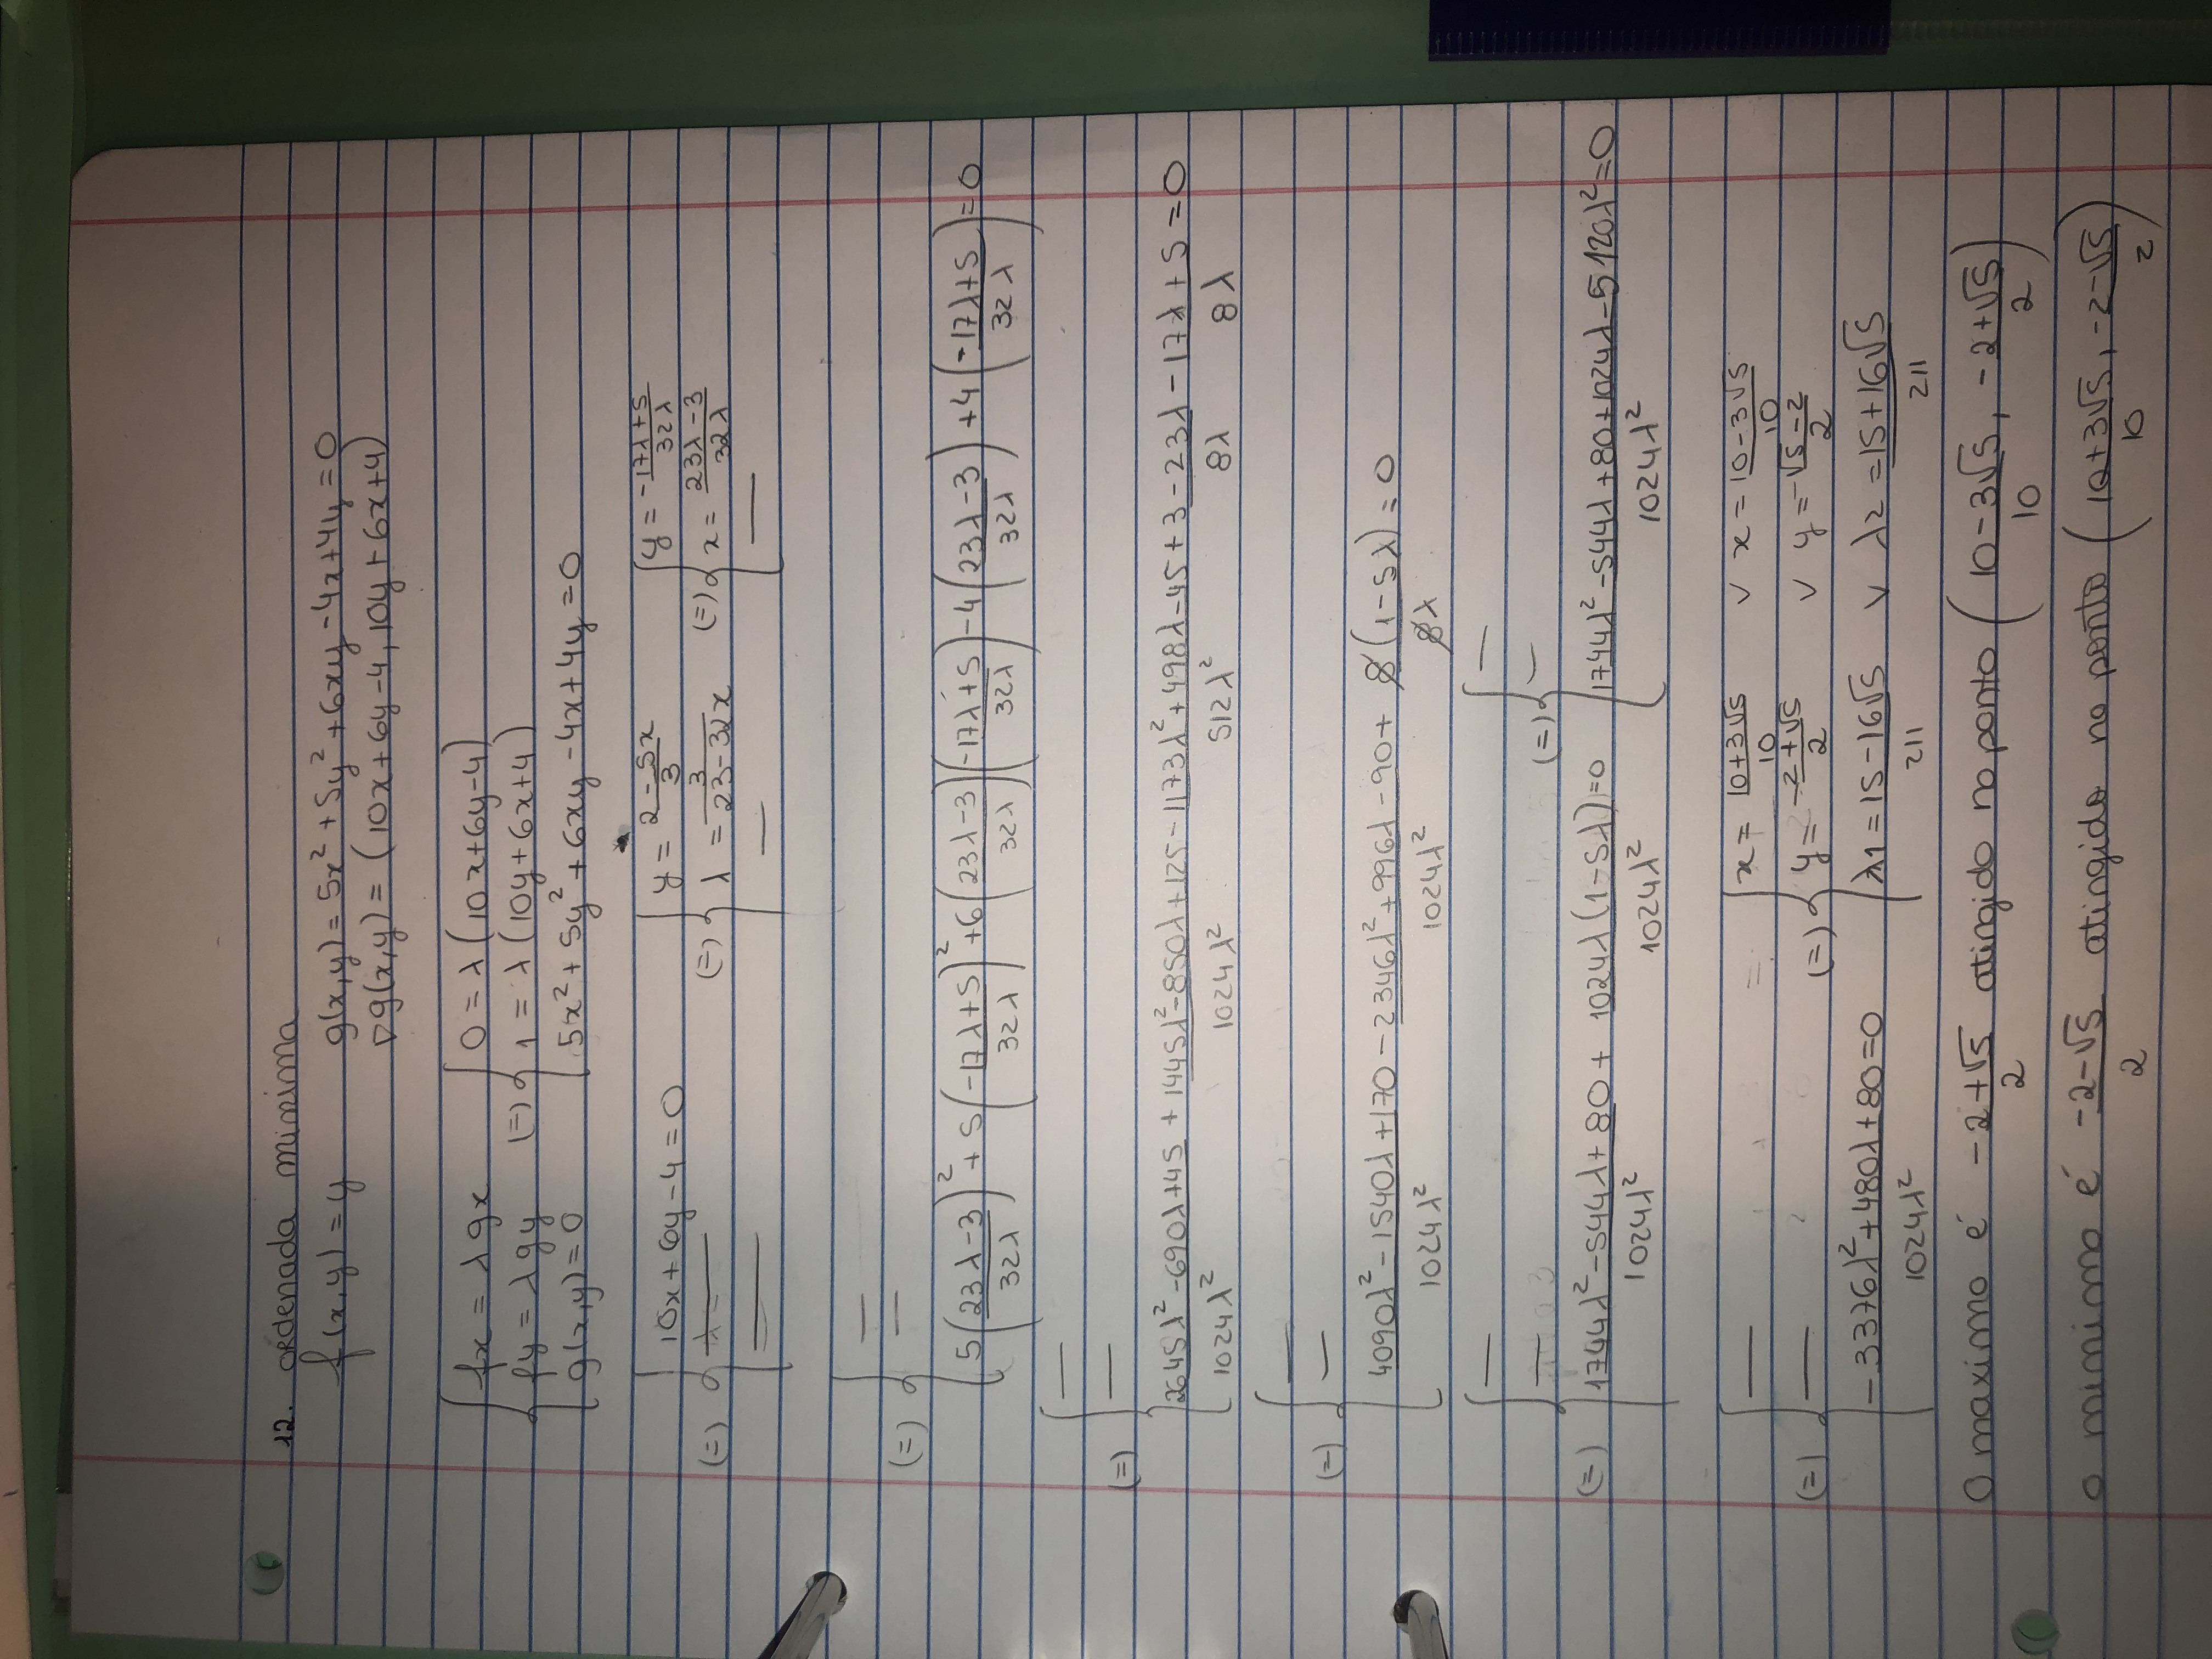 12. ordenada minima
f(x,y) = y g(x,y) = 5x² + 5y² + 6xy - 4x + 4y = 0
∇g(x,y) = (10x + 6y - 4, 10y + 6x + 4)
{ fx = λ gx (=) { 0 = λ (10x + 6y - 4)
fy = λ gy 1 = λ (10y + 6x + 4)
g(x,y) = 0 5x² + 5y² + 6xy - 4x + 4y = 0
(=) { 10x + 6y - 4 = 0 (=) { y = (2 - 5x)/3 (=) { y = (-17λ + 5)/(32λ)
λ = λ = 3/(23 - 32x) x = (23λ - 3)/(32λ)
— — —
(=) { —
—
5((23λ - 3)/(32λ))² + 5((-17λ + 5)/(32λ))² + 6((23λ - 3)/(32λ))((-17λ + 5)/(32λ)) - 4((23λ - 3)/(32λ)) + 4((-17λ + 5)/(32λ)) = 0
(=) { —
—
(2645λ² - 690λ + 45)/(1024λ²) + (1445λ² - 850λ + 125)/(1024λ²) - (1173λ² + 498λ - 45)/(512λ²) + (3 - 23λ)/(8λ) - (17λ + 5)/(8λ) = 0
(=) { —
—
(4090λ² - 1540λ + 170)/(1024λ²) - (2346λ² + 996λ - 90)/(1024λ²) + 8(1 - 5λ)/(8λ) = 0
(=) { —
—
(1744λ² - 544λ + 80)/(1024λ²) + (1024λ(1 - 5λ))/(1024λ²) = 0 (=) { — — (1744λ² - 544λ + 80 + 1024λ - 5120λ²)/(1024λ²) = 0
(=) { — (=) { x = (10 + 3√5)/10 ∨ x = (10 - 3√5)/10
— y = (-2 + √5)/2 ∨ y = (-√5 - 2)/2
(-3376λ² + 480λ + 80)/(1024λ²) = 0 λ1 = (15 - 16√5)/211 ∨ λ2 = (15 + 16√5)/211
O maximo é (-2 + √5)/2 atingido no ponto ((10 - 3√5)/10, (-2 + √5)/2)
o minimo é (-2 - √5)/2 atingido no ponto ((10 + 3√5)/10, (-2 - √5)/2)